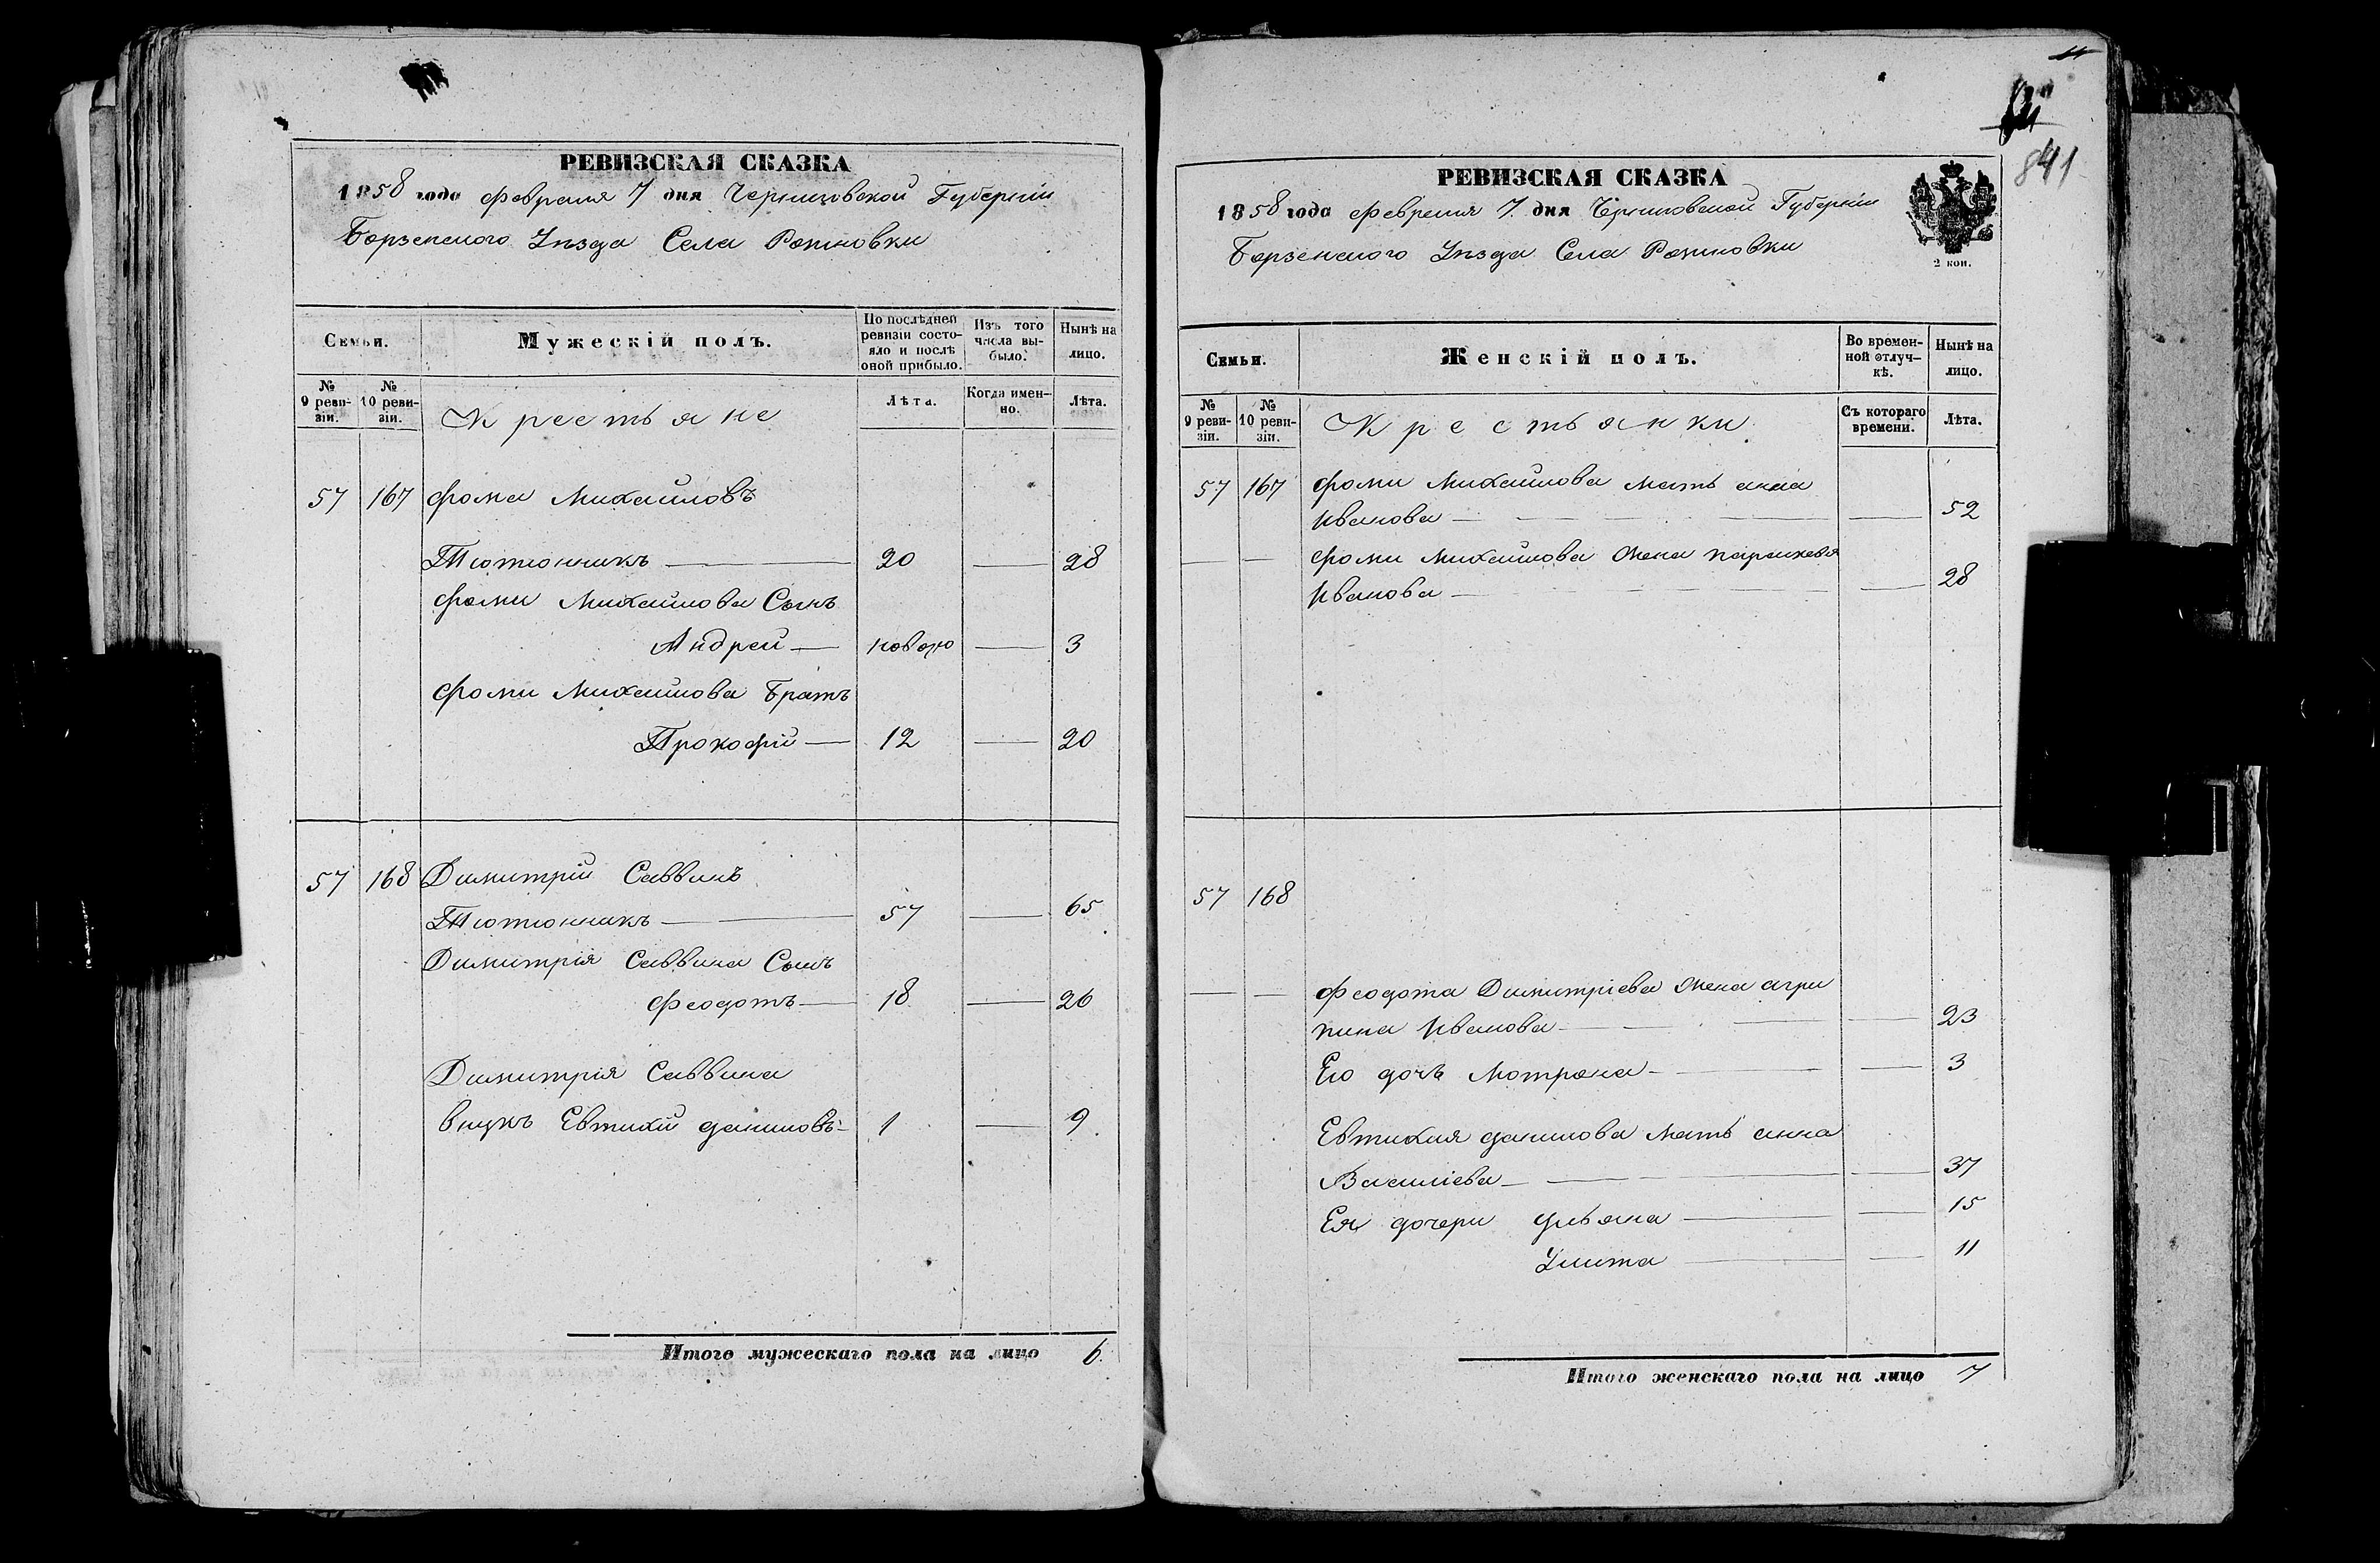 РЕВИЗСКАЯ СКАЗКА
1858 года Февраля 7 дня Черниговской Губерніи
Борзенского Уѣзда Села Ратновки
Семьи.
Мужескій полъ.
По послѣдней ревизіи состояло и послѣ оной прибыло.
Изъ того числа выбыло.
Нынѣ на лицо.
№ 9 ревизіи.
№ 10 ревизіи.
Крестьяне
Лѣта.
Когда именно.
Лѣта.
57 167 Фома Михайловъ
Тютюнникъ 20 28
Фомы Михайлова Сынъ
Андрей новорю 3
Фомы Михайлова Братъ
Прокофій 12 20
57 168 Димитрій Саввинъ
Тютюнникъ 57 65
Димитрія Саввина Сынъ
Феодотъ 18 26
Димитрія Саввина
внукъ Евтихій Даниловъ 1 9
Итого мужескаго пола на лицо 6.
841
РЕВИЗСКАЯ СКАЗКА
1858 года Февраля 7. дня Черниговской Губерніи
Борзенского Уѣзда Села Ратновки
2 коп.
Семьи.
Женскій полъ.
Во временной отлучкѣ.
Нынѣ на лицо.
№ 9 ревизіи.
№ 10 ревизіи.
Крестьянки
Съ котораго времени.
Лѣта.
57 167 Фомы Михайлова мать анна
Иванова 52
Фомы Михайлова жена параскевія
Иванова 28
57 168
Феодота Димитріева жена агри
пина Иванова 23
Его дочь Мотрона 3
Евтихия Данилова мать анна
Василіева 37
Ея дочери Ульяна 15
Улита 11
Итого женскаго пола на лицо 7